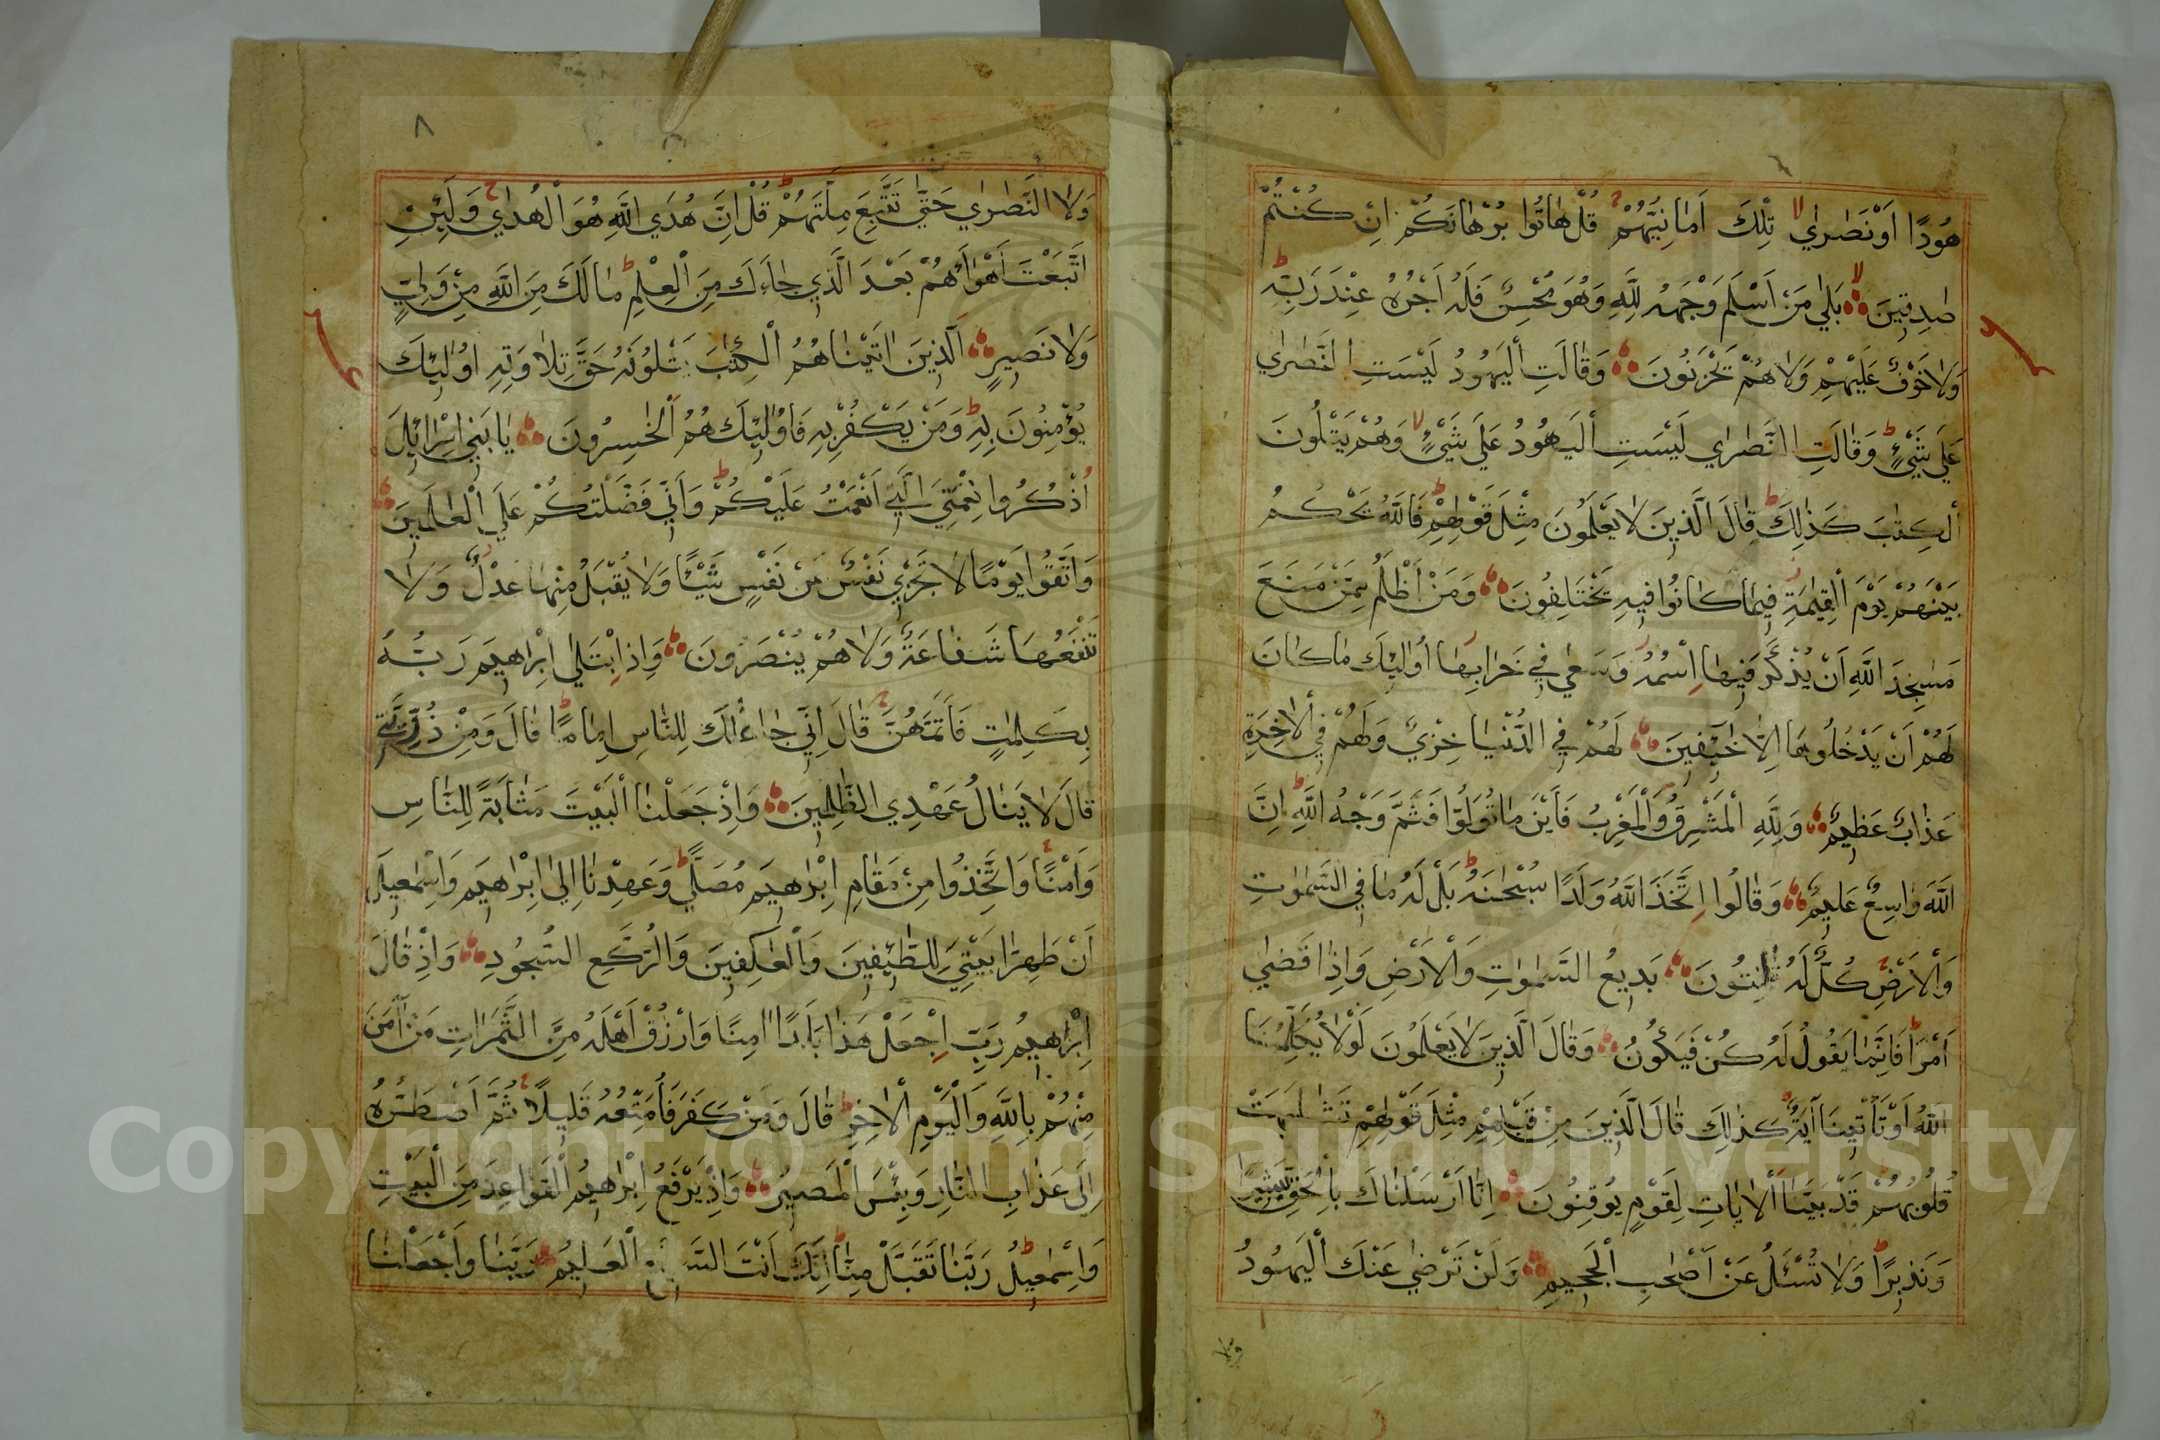 هُودًا اَوْ نَصٰرٰي لا تِلْكَ اَمٰانِيُّهُمْ قُلْ هٰاتُوا بُرْهٰانَكُمْ اِنْ كُنْتُمْ
صٰدِقِينَ بَلٰي مَنْ اَسْلَمَ وَجْهَهُ لِلّٰهِ وَهُوَ مُحْسِنٌ فَلَهُ اَجْرُهُ عِنْدَ رَبِّهِ ط
وَلٰا خَوْفٌ عَلَيْهِمْ وَلٰا هُمْ يَحْزَنُونَ وَقٰالَتِ الْيَهُودُ لَيْسَتِ النَّصٰرٰي
عَلٰي شَيْءٍ ط وَقٰالَتِ النَّصٰرٰي لَيْسَتِ الْيَهُودُ عَلٰي شَيْءٍ لا وَهُمْ يَتْلُونَ
الْكِتٰبَ كَذٰلِكَ ط قٰالَ الَّذِينَ لٰا يَعْلَمُونَ مِثْلَ قَوْلِهِمْ ط فَاللّٰهُ يَحْكُمُ
بَيْنَهُمْ يَوْمَ الْقِيٰمَةِ فِيمٰا كٰانُوا فِيهِ يَخْتَلِفُونَ وَمَنْ اَظْلَمُ مِمَّنْ مَنَعَ
مَسٰجِدَ اللّٰهِ اَنْ يُذْكَرَ فِيهٰا اسْمُهُ وَسَعٰي فِي خَرٰابِهٰا اُولٰئِكَ مٰا كٰانَ
لَهُمْ اَنْ يَدْخُلُوهٰا اِلّٰا خٰائِفِينَ لَهُمْ فِي الدُّنْيٰا خِزْيٌ وَلَهُمْ فِي الْاٰخِرَةِ
عَذٰابٌ عَظِيمٌ وَلِلّٰهِ الْمَشْرِقُ وَالْمَغْرِبُ فَاَيْنَ مٰا تُوَلُّوا فَثَمَّ وَجْهُ اللّٰهِ ط اِنَّ
اللّٰهَ وٰاسِعٌ عَلِيمٌ وَقٰالُوا اتَّخَذَ اللّٰهُ وَلَدًا سُبْحٰنَهُ ط بَلْ لَهُ مٰا فِي السَّمٰوٰتِ
وَالْاَرْضِ كُلٌّ لَهُ قٰنِتُونَ بَدِيعُ السَّمٰوٰتِ وَالْاَرْضِ وَاِذٰا قَضٰي
اَمْرًا فَاِنَّمٰا يَقُولُ لَهُ كُنْ فَيَكُونُ وَقٰالَ الَّذِينَ لٰا يَعْلَمُونَ لَوْلٰا يُكَلِّمُنَا
اللّٰهُ اَوْ تَأْتِينٰا اٰيَةٌ كَذٰلِكَ قٰالَ الَّذِينَ مِنْ قَبْلِهِمْ مِثْلَ قَوْلِهِمْ تَشٰابَهَتْ
قُلُوبُهُمْ قَدْ بَيَّنَّا الْاٰيٰاتِ لِقَوْمٍ يُوقِنُونَ اِنّٰا اَرْسَلْنٰاكَ بِالْحَقِّ بَشِيرًا
وَنَذِيرًا وَلٰا تُسْئَلُ عَنْ اَصْحٰبِ الْجَحِيمِ وَلَنْ تَرْضٰي عَنْكَ الْيَهُودُ
ولا
٨
وَلَا النَّصٰرٰي حَتّٰي تَتَّبِعَ مِلَّتَهُمْ ط قُلْ اِنَّ هُدَي اللّٰهِ هُوَ الْهُدٰي وَلَئِنِ
اتَّبَعْتَ اَهْوٰاءَهُمْ بَعْدَ الَّذِي جٰاءَكَ مِنَ الْعِلْمِ ط مٰا لَكَ مِنَ اللّٰهِ مِنْ وَلِيٍّ
وَلٰا نَصِيرٍ اَلَّذِينَ اٰتَيْنٰاهُمُ الْكِتٰبَ يَتْلُونَهُ حَقَّ تِلٰاوَتِهِ اُولٰئِكَ
يُؤْمِنُونَ بِهِ ط وَمَنْ يَكْفُرْ بِهِ فَاُولٰئِكَ هُمُ الْخٰسِرُونَ يٰا بَنِي اِسْرٰائِلَ
اذْكُرُوا نِعْمَتِيَ الَّتِي اَنْعَمْتُ عَلَيْكُمْ ط وَاَنِّي فَضَّلْتُكُمْ عَلَي الْعٰالَمِينَ
وَاتَّقُوا يَوْمًا لٰا تَجْزِي نَفْسٌ عَنْ نَفْسٍ شَيْئًا وَلٰا يُقْبَلُ مِنْهٰا عَدْلٌ وَلٰا
تَنْفَعُهٰا شَفٰاعَةٌ وَلٰا هُمْ يُنْصَرُونَ وَاِذِ ابْتَلٰي اِبْرٰاهِيمَ رَبُّهُ
بِكَلِمٰتٍ فَاَتَمَّهُنَّ قٰالَ اِنِّي جٰاعِلُكَ لِلنّٰاسِ اِمٰامًا ط قٰالَ وَمِنْ ذُرِّيَّتِي
قٰالَ لٰا يَنٰالُ عَهْدِي الظّٰلِمِينَ وَاِذْ جَعَلْنَا الْبَيْتَ مَثٰابَةً لِلنّٰاسِ
وَاَمْنًا وَاتَّخِذُوا مِنْ مَقٰامِ اِبْرٰاهِيمَ مُصَلًّي ط وَعَهِدْنٰا اِلٰي اِبْرٰاهِيمَ وَاِسْمٰعِيلَ
اَنْ طَهِّرٰا بَيْتِيَ لِلطّٰئِفِينَ وَالْعٰاكِفِينَ وَالرُّكَّعِ السُّجُودِ وَاِذْ قٰالَ
اِبْرٰاهِيمُ رَبِّ اجْعَلْ هٰذٰا بَلَدًا اٰمِنًا وَارْزُقْ اَهْلَهُ مِنَ الثَّمَرٰاتِ مَنْ اٰمَنَ
مِنْهُمْ بِاللّٰهِ وَالْيَوْمِ الْاٰخِرِ ط قٰالَ وَمَنْ كَفَرَ فَاُمَتِّعُهُ قَلِيلًا ثُمَّ اَضْطَرُّهُ
اِلٰي عَذٰابِ النّٰارِ وَبِئْسَ الْمَصِيرُ وَاِذْ يَرْفَعُ اِبْرٰاهِيمُ الْقَوٰاعِدَ مِنَ الْبَيْتِ
وَاِسْمٰعِيلُ رَبَّنٰا تَقَبَّلْ مِنّٰا ط اِنَّكَ اَنْتَ السَّمِيعُ الْعَلِيمُ رَبَّنٰا وَاجْعَلْنٰا
Copyright © King Saud University